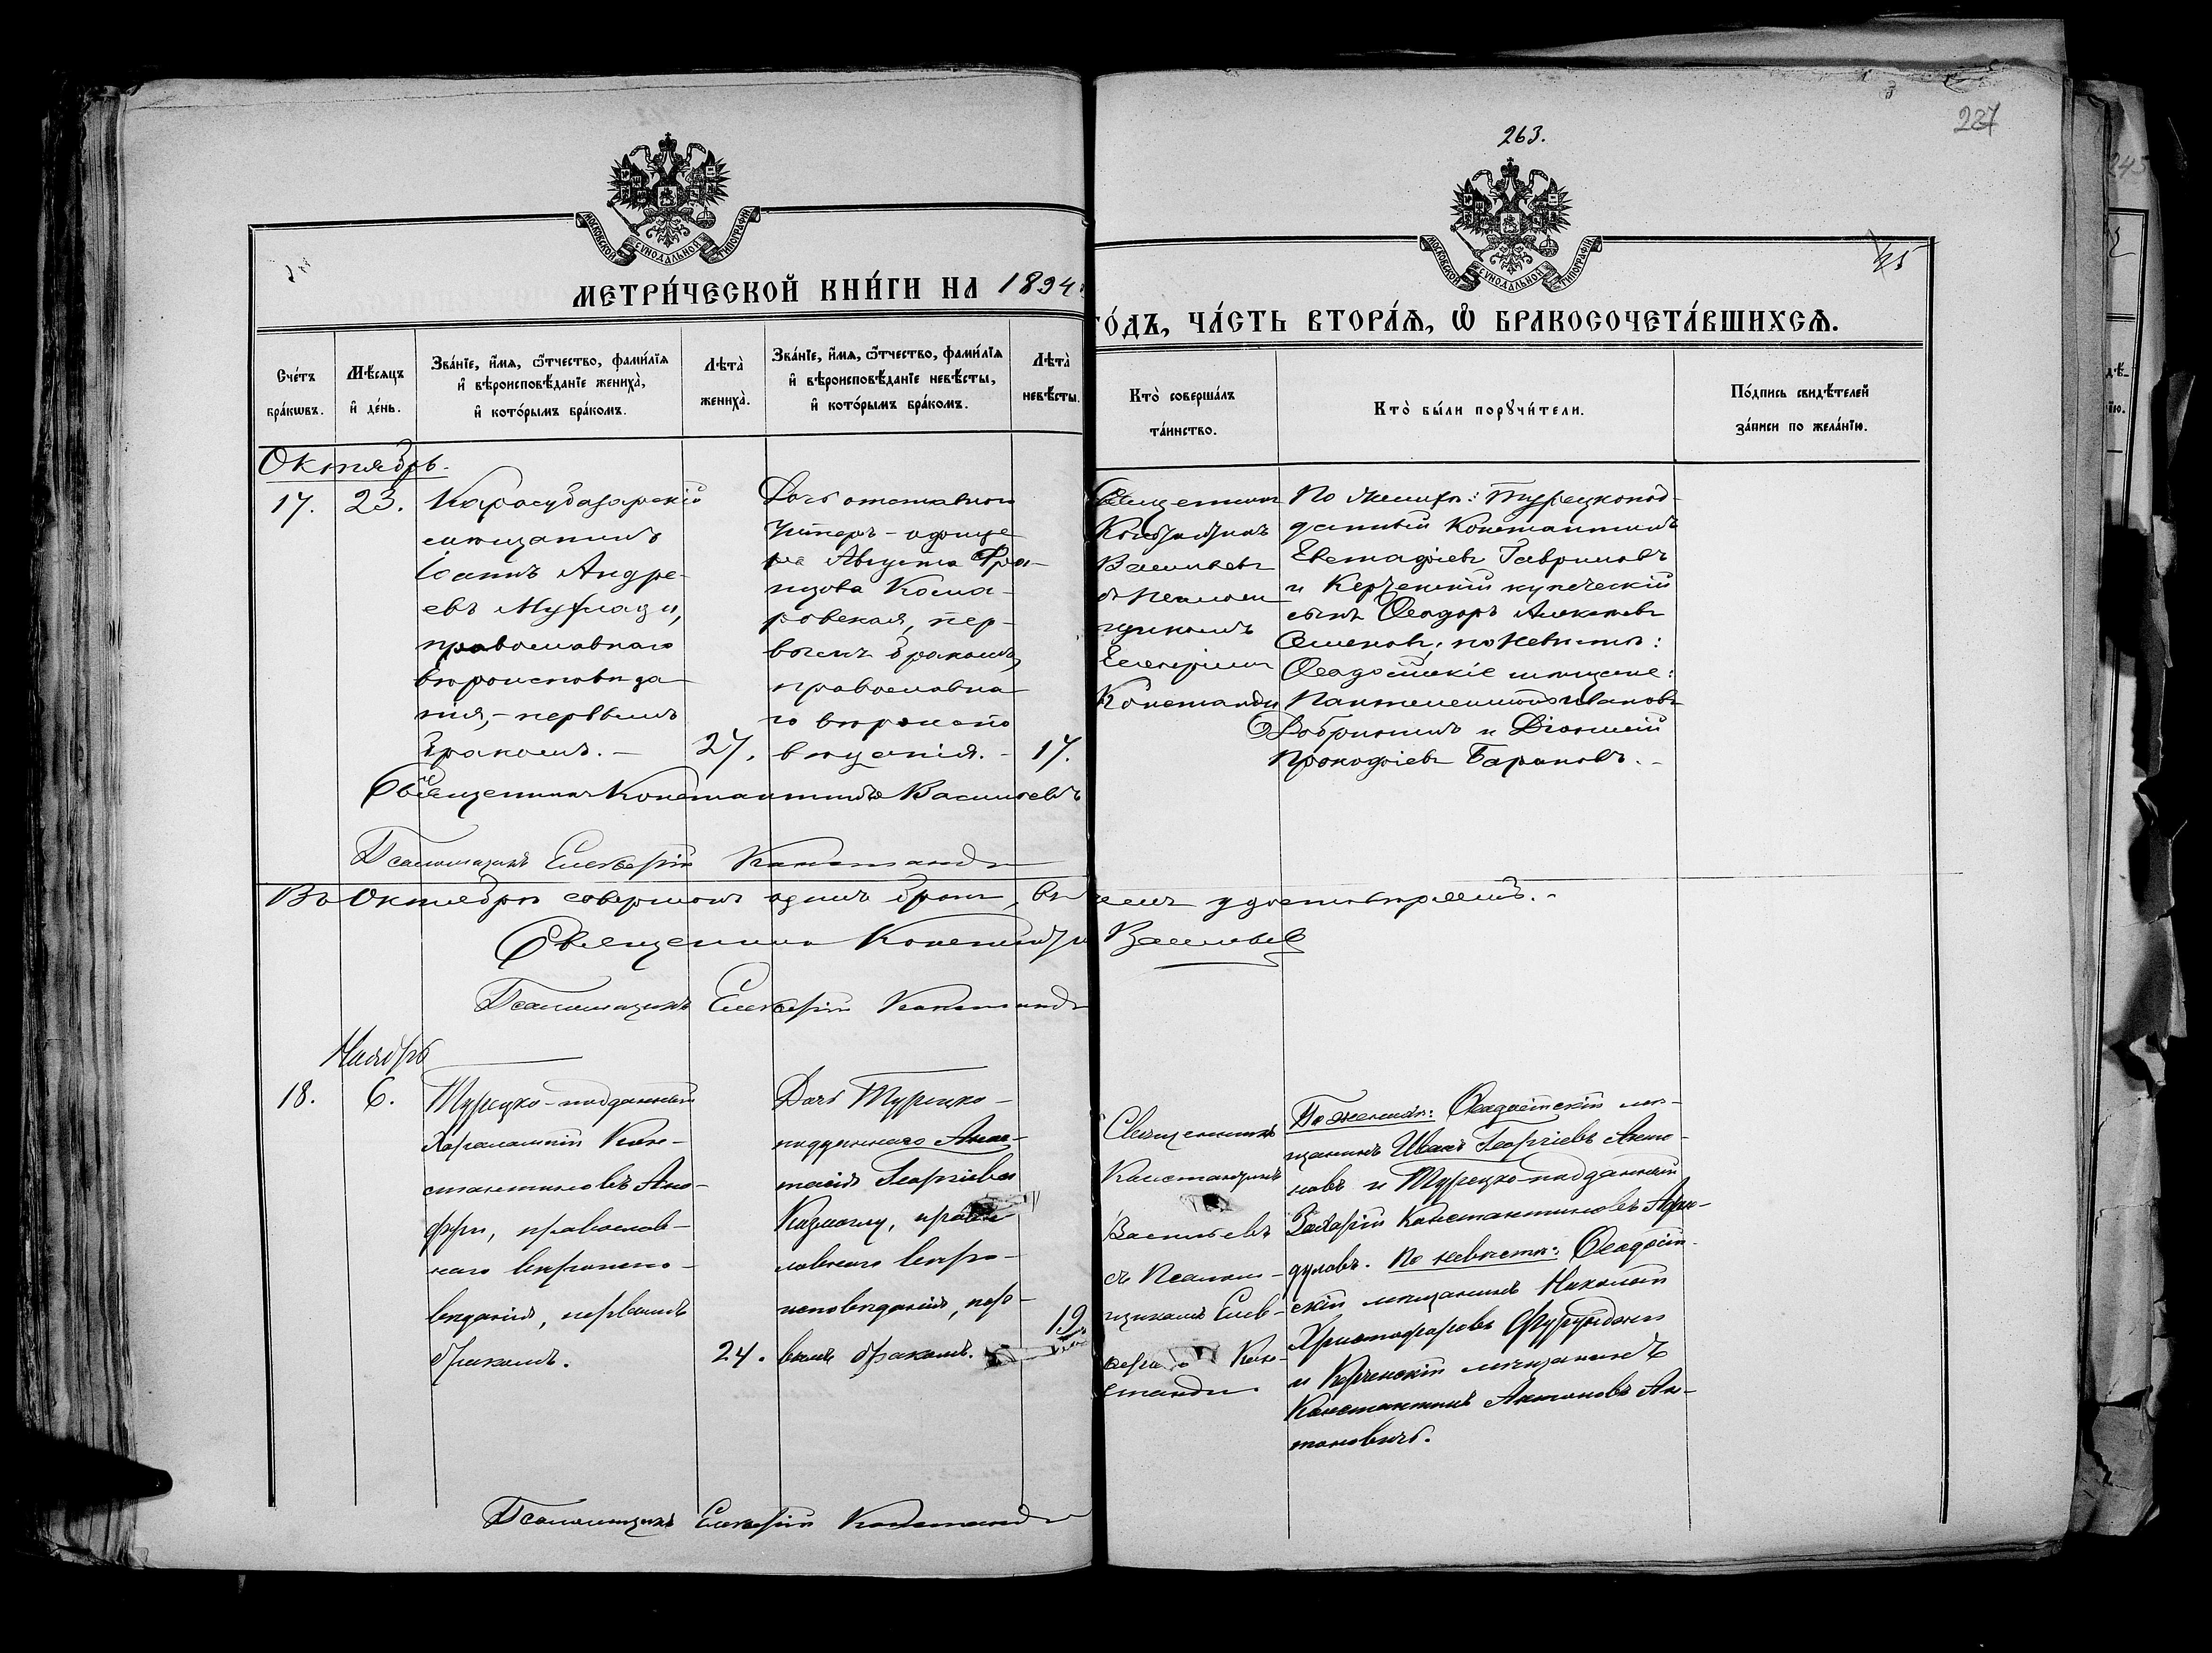 263.
227
МОСКОВСКОЙ СУНОДАЛЬНОЙ ТИПОГРАФІИ
МОСКОВСКОЙ СУНОДАЛЬНОЙ ТИПОГРАФІИ
МЕТРИ́ЧЕСКОЙ КНИ́ГИ НА 1894
ГО́ДЪ, ЧА́СТЬ ВТОРА́Ѧ, Ѡ҆ БРАКОСОЧЕТА́ВШИХСѦ.
Сче́тъ бра́кѡвъ.
Мѣ́сѧцъ и҆ де́нь.
Зва́нїе, и҆́мѧ, ѻ҆́тчество, фами́лїѧ
и҆ вѣроисповѣ́данїе жениха̀,
и҆ кото́рымъ бра́комъ.
Лѣта̀ жениха̀.
Зва́нїе, и҆́мѧ, ѻ҆́тчество, фами́лїѧ
и҆ вѣроисповѣ́данїе невѣ́сты,
и҆ кото́рымъ бра́комъ.
Лѣта̀ невѣ́сты.
Кто̀ соверша́лъ
та́инство.
Кто̀ бы́ли порꙋчи́тели.
По́дпись свидѣ́телей
за́писи по жела́нїю.
Октябрь.
17.
23.
Карасубазарскій
мѣщанинъ
Іоаннъ Андре-
евъ
православнаго
вѣроисповѣда
нія, – первымъ
бракомъ. –
27.
Дочь отставного
Унтеръ-офице
ра Августа Фра-
нцова Кома-
ровская, пер-
вымъ бракомъ,
православна
го вѣроиспо
вѣданія. –
17.
Священникъ
Константинъ
Васильевъ
съ псалом
щикомъ
Елевѳеріемъ
Константи
По женихѣ: Турецкопод-
данный Константинъ
Евстафіевъ Гавриловъ
и Керченскій купеческій
сынъ Ѳеодоръ Алексѣевъ
Семеновъ; по невѣстѣ:
Ѳеодосійскіе мѣщане:
Пантелеимонъ Ивановъ
Добрынинъ и Діонисій
Прокофіевъ Барановъ. –
Священникъ Константинъ Васильевъ
Псаломщикъ Елевѳерій
Въ Октябрѣ совершенъ одинъ бракъ, въ чемъ удостовѣряемъ. –
Священникъ Константинъ Васильевъ
Псаломщикъ Елевѳерій
Ноябрь
18.
6.
Турецко-подданный
Харалампій Кон-
стантиновъ Ано-
фри, православ-
наго вѣроиспо-
вѣданія, первымъ
бракомъ.
24.
Дочь Турецко-
подданнаго Анас-
тасія Георгіева
Казмоглу, право
славнаго вѣро-
исповѣданія, пер-
вымъ бракомъ.
19
Священникъ
Константинъ
Васильевъ
съ псалом-
щикомъ Елев-
Кон-
станди
По женихѣ: Ѳеодосійскій мѣ-
щанинъ Иванъ Георгіевъ Анто-
новъ и Турецко-подданный
Захарій Константиновъ Афен-
дуловъ. По невѣстѣ: Ѳеодосій-
скій мѣщанинъ Николай
Христофоровъ Фурунджи
и Керченскій мѣщанинъ
Константинъ Антоновъ Ан-
тоновичъ.
Псаломщикъ Елевѳерій